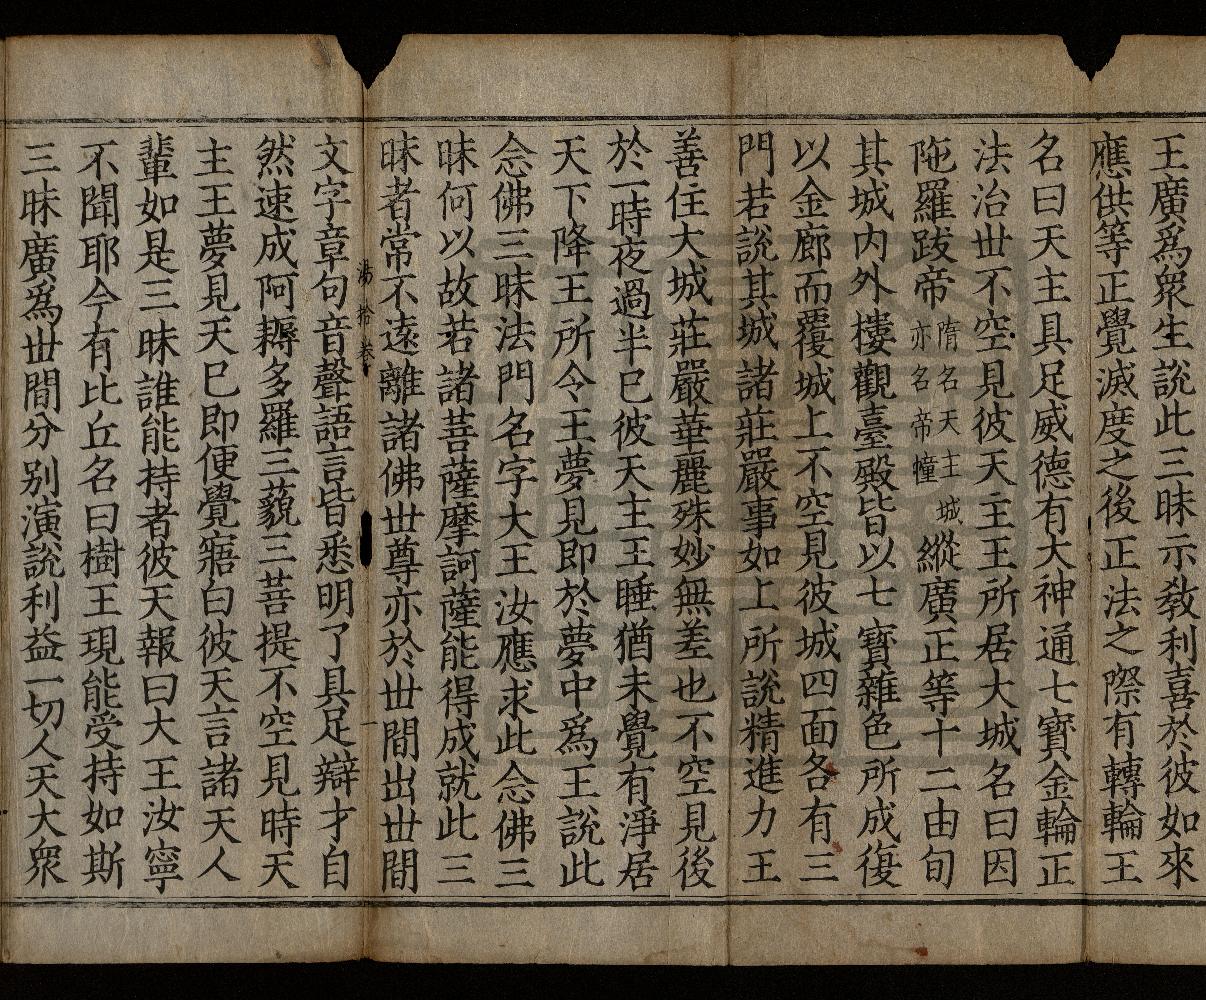 王廣爲衆生說此三昧示教利喜於彼如來
應供等正覺滅度之後正法之際有轉輪王
名曰天主具足威德有大神通七寶金輪正
法治世不空見彼天主王所居大城名曰因
陁羅跋帝隋名天主城亦名帝幢縱廣正等十二由旬
其城內外樓觀臺殿皆以七寶雜色所成復
以金廊而覆城上不空見彼城四面各有三
門若說其城諸莊嚴事如上所說精進力王
善住大城莊嚴華麗殊妙無差也不空見後
於一時夜過半已彼天主王睡猶未覺有淨居
天下降王所令王夢見即於夢中爲王說此
念佛三昧法門名字大王汝應求此念佛三
昧何以故若諸菩薩摩訶薩能得成就此三
昧者常不遠離諸佛世尊亦於世間出世間
湯 拾卷 一
文字章句音聲語言皆悉明了具足辯才自
然速成阿耨多羅三藐三菩提不空見時天
主王夢見天已即便覺寤白彼天言諸天人
輩如是三昧誰能持者彼天報曰大王汝寧
不聞耶今有比丘名曰樹王現能受持如斯
三昧廣爲世間分別演說利益一切人天大衆